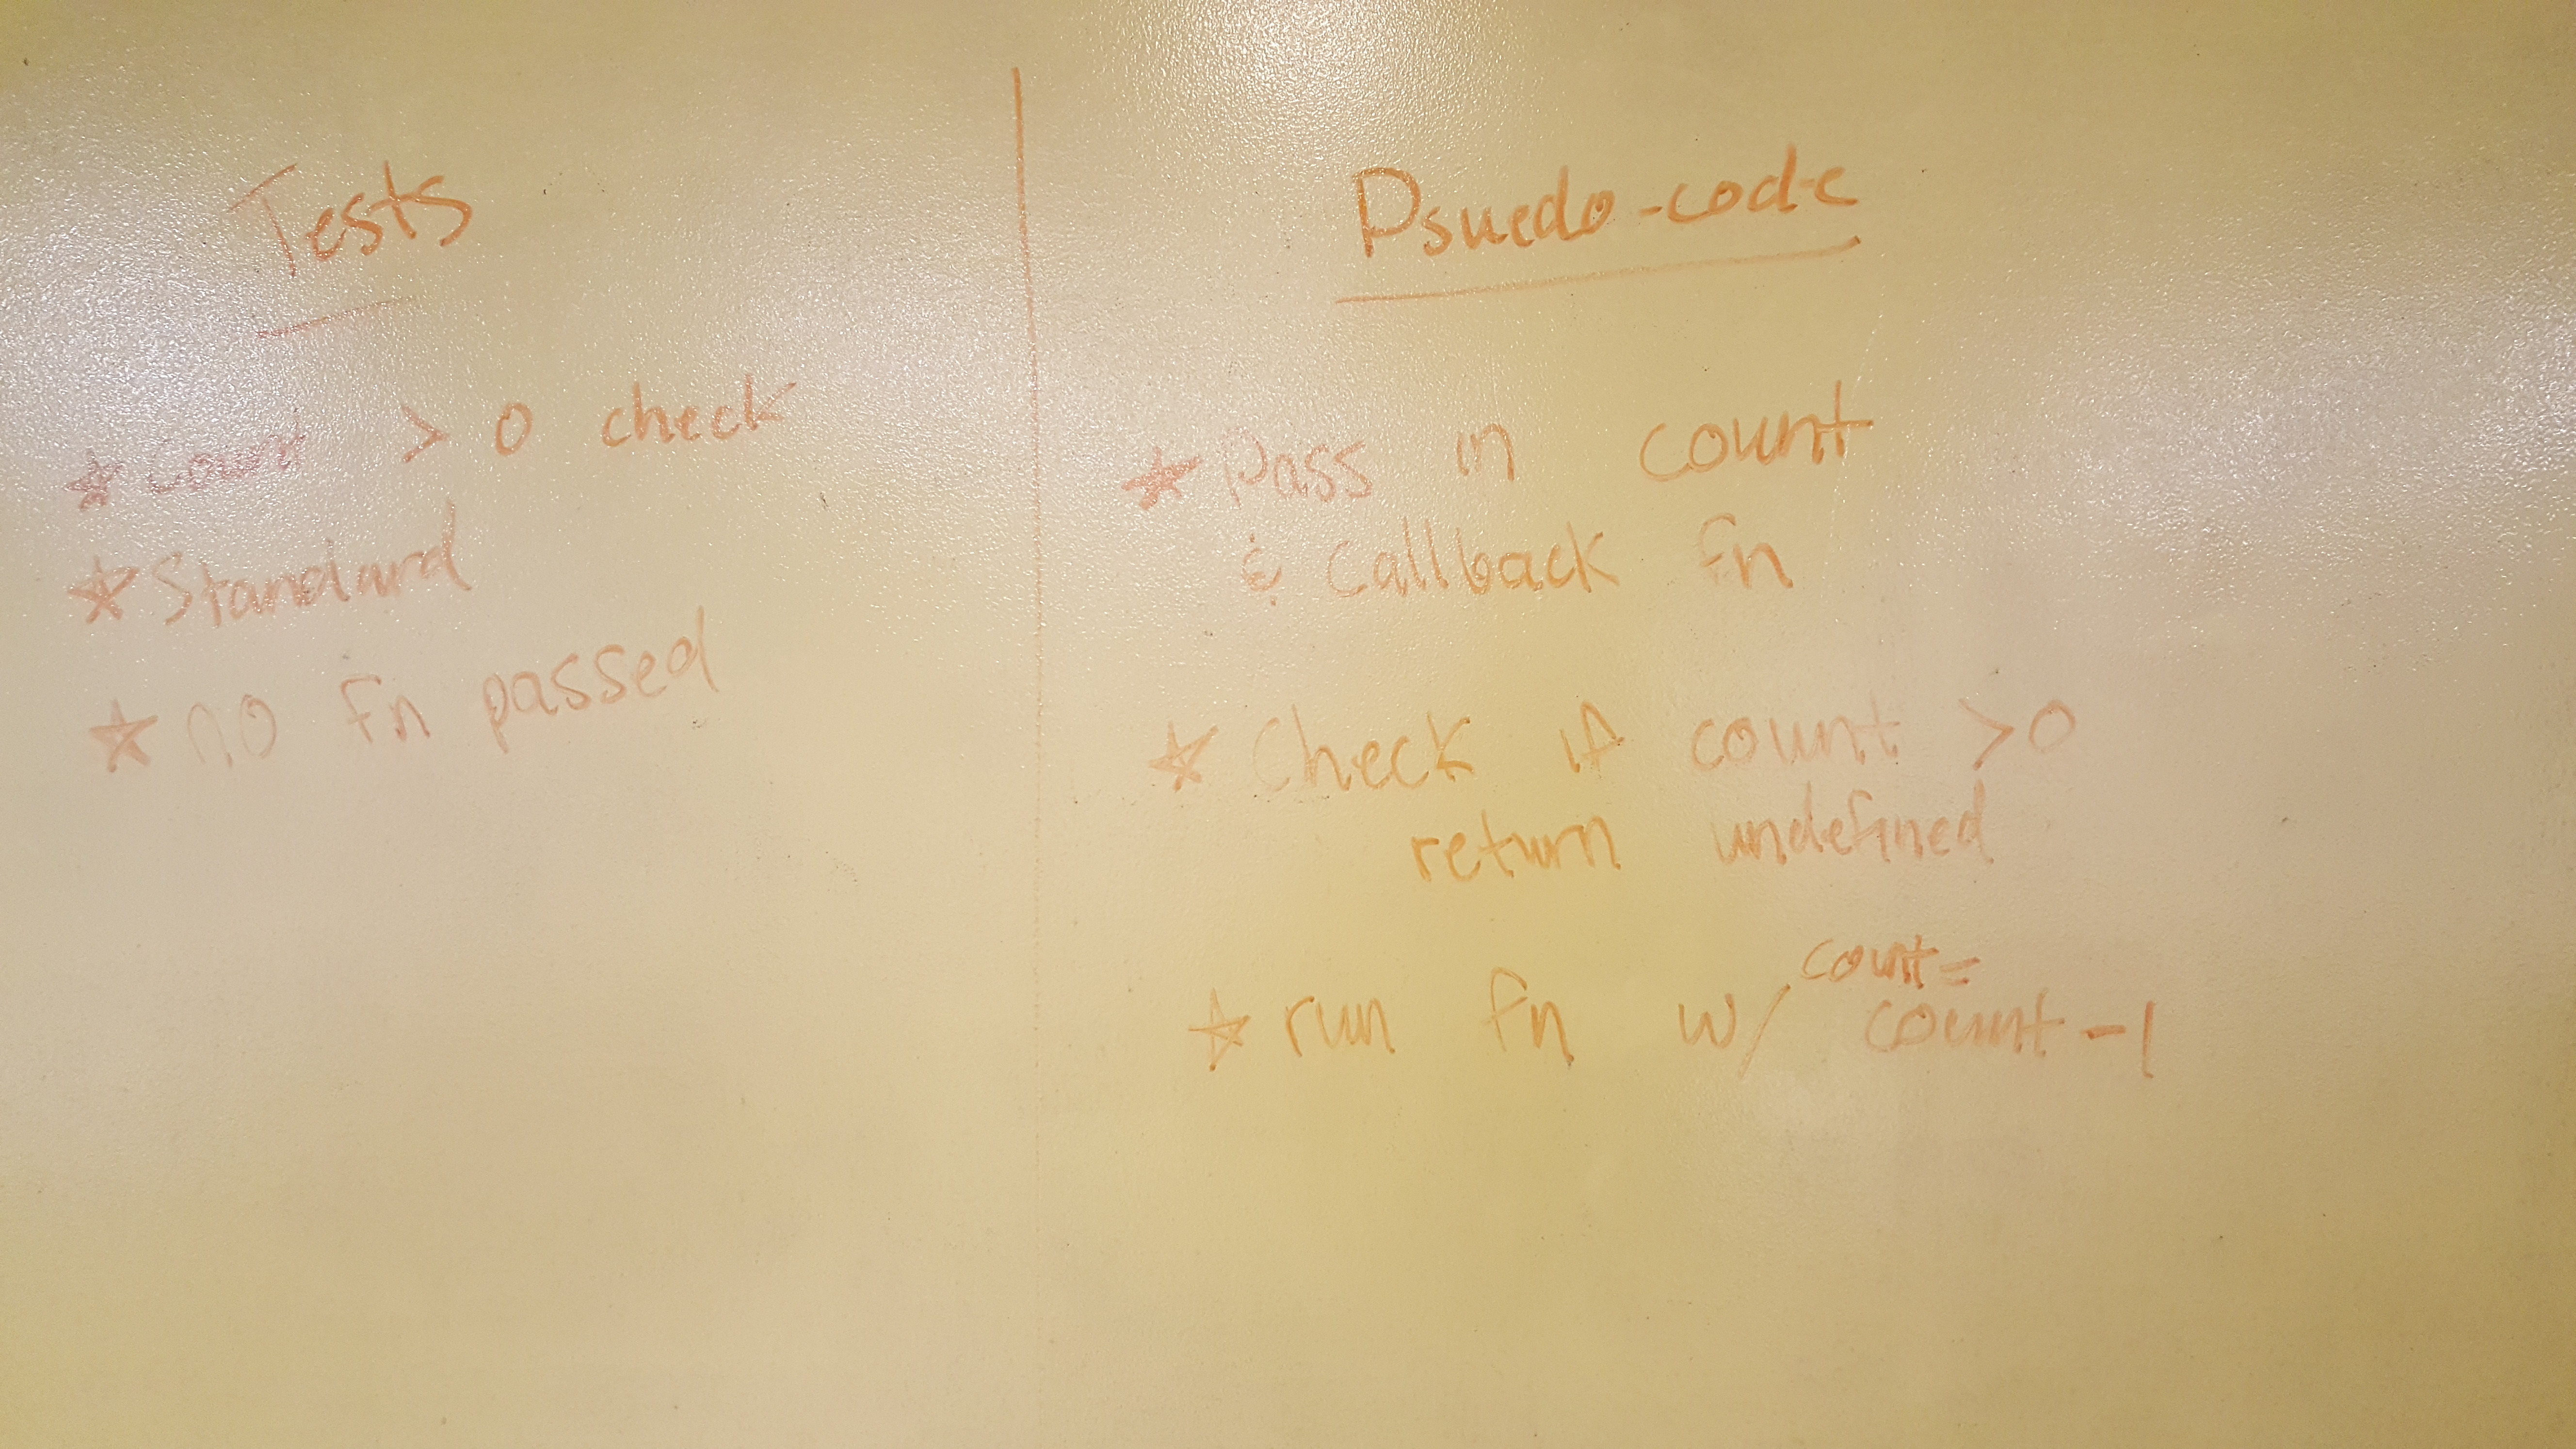 Tests
* count > 0 check
* Standard
* no fn passed
Psuedo-code
* Pass in count
& callback fn
* Check if count >0
return undefined
count=
* run fn w/ count-1